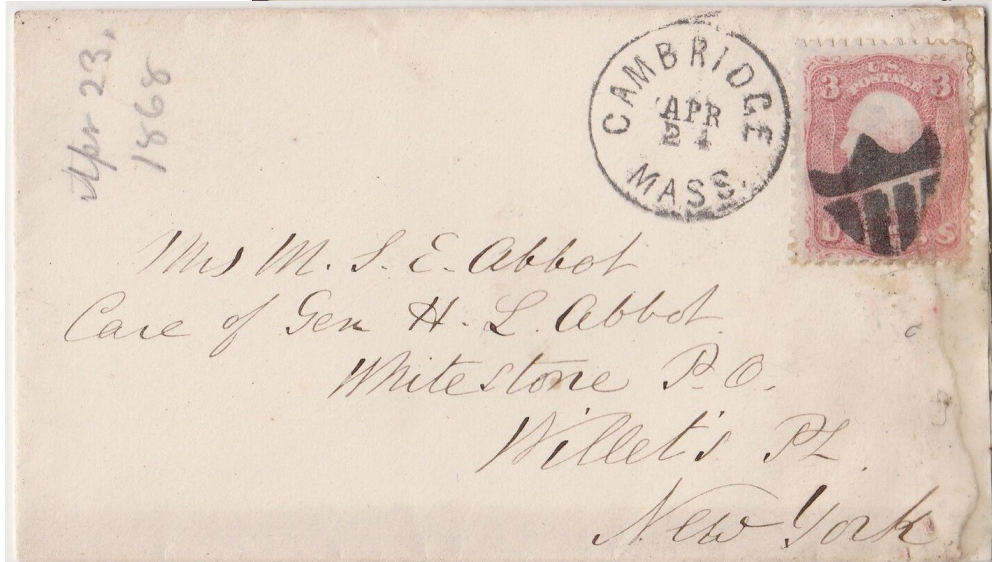 Apr 23,
1868
CAMBRIDGE
APR
24
MASS.
3 U.S. 3
POSTAGE
U S
Mrs M. S. E. Abbot
Care of Gen H. L. Abbot.
Whitestone P.O.
Willet's Pt.
New York